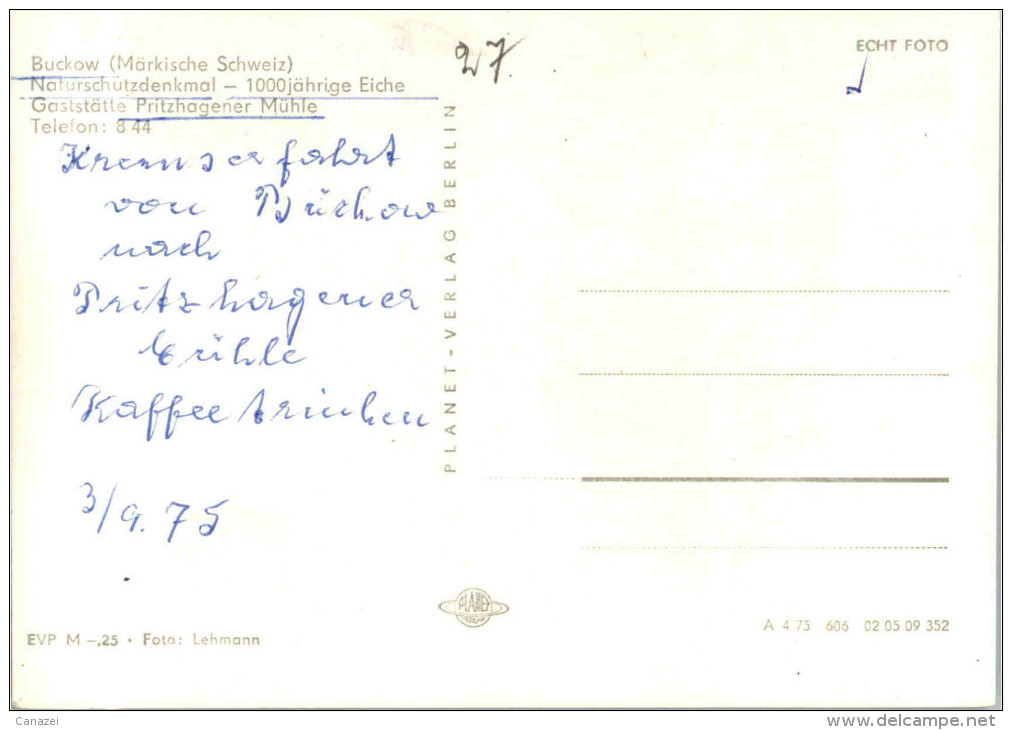 27.
ECHT FOTO
Buckow (Märkische Schweiz)
Naturschutzdenkmal – 1000jährige Eiche
Gaststätte Pritzhagener Mühle
Telefon: 8 44
Kremserfahrt
von Buckow
nach
Pritzhagener
Mühle
Kaffee trinken
3/9. 75
PLANET-VERLAG BERLIN
PLANET
VERLAG
EVP M –,25 · Foto: Lehmann
A 4 75 606 02 05 09 352
Canazei
www.delcampe.net